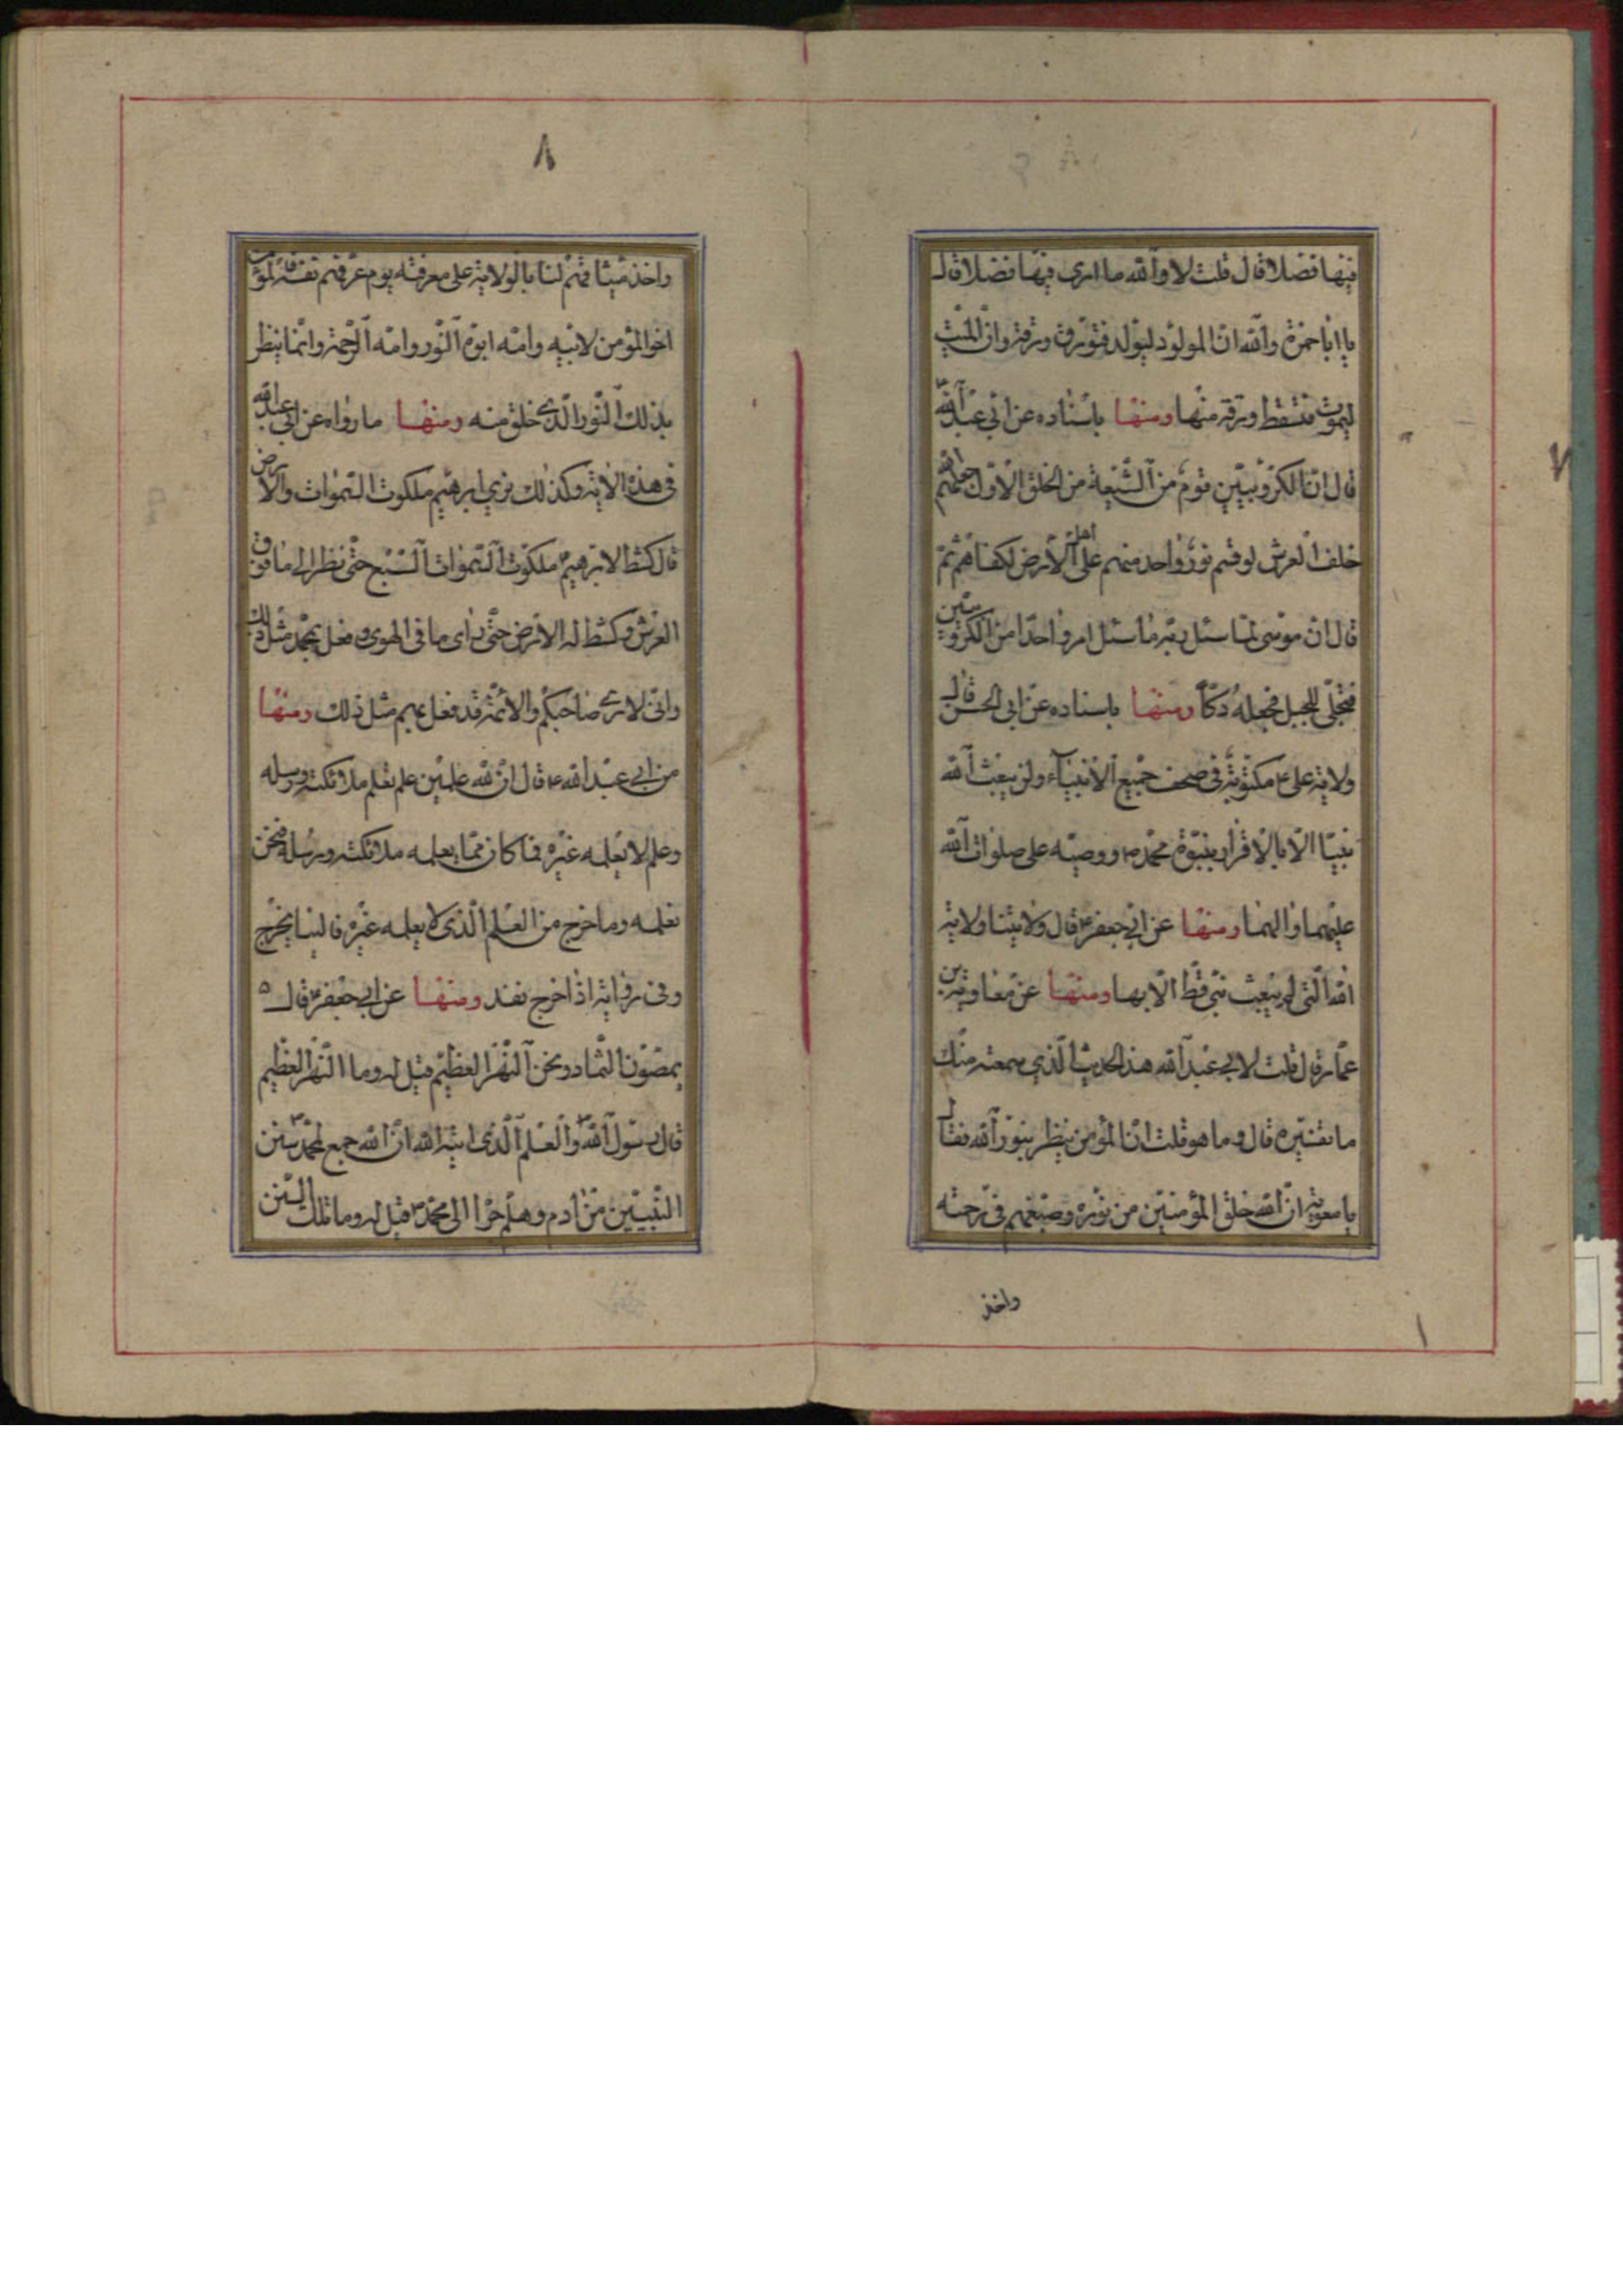 فيها فضلا قال قلت لا والله ما ارى فيها فضلا قال
يا ابا حمزة والله ان المولود ليولد فتورق ورقة وان الميت
ليموت فتسقط ورقة منها ومنها باسناده عن ابي عبد الله ع
قال ان الكروبيين قوم من الشيعة من الخلق الاول جعلهم الله
خلف العرش لو قسم نور واحد منهم على اهل الارض لكفاهم ثم
قال ان موسى لما سئل ربه ما سئل امر واحدا من الكروبيين
فتجلى للجبل فجعله دكا ومنها باسناده عن ابي الحسن قال
ولاية علي ع مكتوبة في صحف جميع الانبياء ولن يبعث الله
نبيا الا بالاقرار بنبوة محمد ص ووصيه على صلوات الله
عليهما والهما ومنها عن ابي جعفر ع قال ولايتنا ولاية
الله التي لم يبعث نبي قط الا بها ومنها عن معاوية بن
عمار قال قلت لابي عبد الله هذا الحديث الذي سمعته منك
ما تفسيره قال وما هو قلت ان المؤمن ينظر بنور الله فقال
يا معوية ان الله خلق المؤمنين من نوره وصبغهم في رحمته
واخذ
٨
واخذ ميثاقهم لنا بالولاية على معرفته يوم عرفهم نفسه فالمؤمن
اخو المؤمن لابيه وامه ابوه النور وامه الرحمة وانما ينظر
بذلك النور الذي خلق منه ومنها ما رواه عن ابي عبد الله
في هذه الاية وكذلك نري ابرهيم ملكوت السموات والارض
قال كشط لابرهيم ملكوت السموات السبع حتى نظر الى ما فوق
العرش وكشط له الارض حتى راى ما في الهوى وفعل بمحمد مثل ذلك
واني لارى صاحبكم والائمة قد فعل بهم مثل ذلك ومنها
عن ابي عبد الله ع قال ان لله علمين علم تعلم ملائكته ورسله
وعلم لا يعلمه غيره فما كان مما يعلمه ملائكته ورسله فنحن
نعلمه وما خرج من العلم الذي لا يعلمه غيره فالينا يخرج
وفي رواية اذا خرج نفد ومنها عن ابي جعفر ع قال
يمصون الثماد ويدعون النهر العظيم قيل له وما النهر العظيم
قال رسول الله ص والعلم الذي اتيه الله ان الله جمع لمحمد ص سنن
النبيين من ادم وهلم جرا الى محمد ص قيل له وما تلك السنن